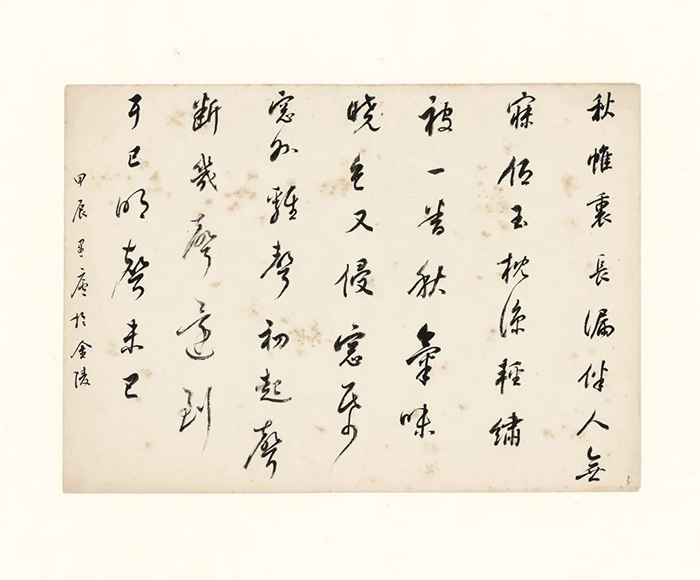 秋帷裏長漏伴人無
寐低玉枕涼輕繡
被一番秋氣味
曉色又侵窓紙
窓外雞聲初起聲
斷幾聲還到
耳已明聲未已
甲辰廬於金陵
3